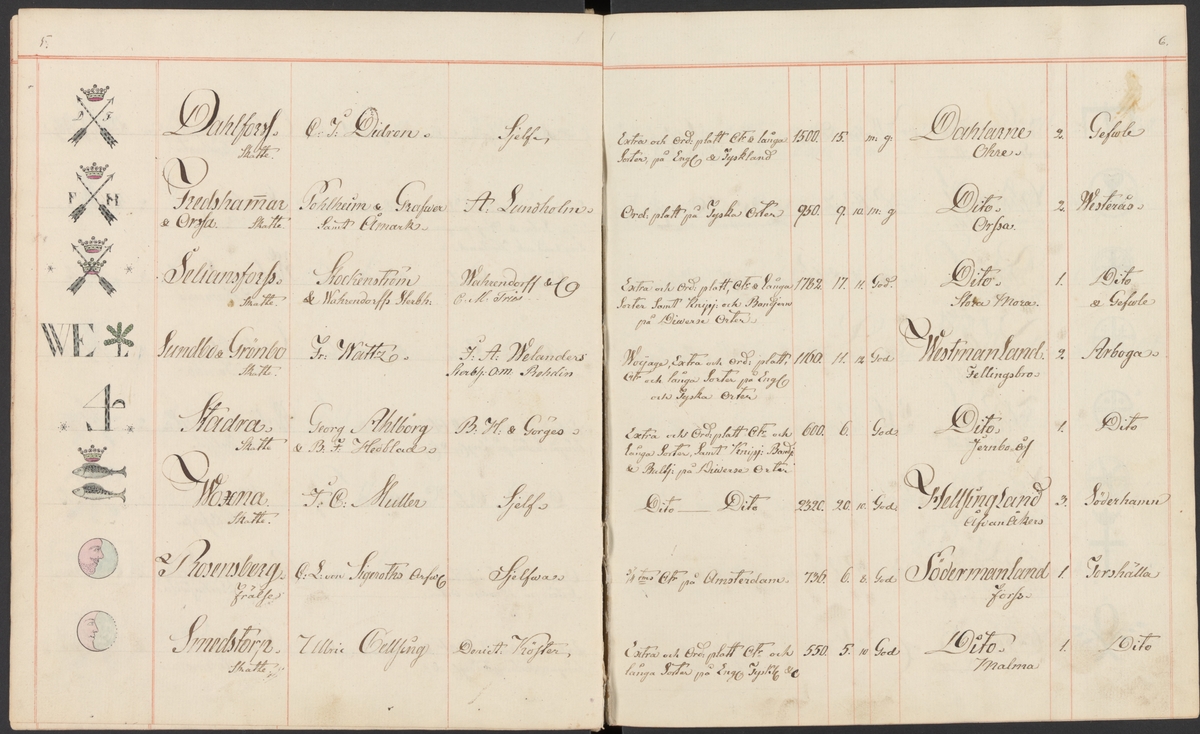 5.
6.
D F
Dahlforss.
Skatte.
C. F. Didron.
Sjelf.
Extra och Ord: platt Ct: & långa
Sorter, på Eng & Tyskland
1500. 15. m: g:
Dahlarne
Ohre.
2. Gefwle
F H
Fredshammar
& Orssa. Skatte
Pohlheim & Grafwer
Samt Åmark.
A. Lundholm.
Ord: platt på Tyska Orter
950. 9. 10. m: g
Dito.
Orssa.
2. Westerås.
Seliansforss.
Skatte.
Stockenström
& Wahrendorffs Sterbh:
Wahrendorff & C
C. M. Fries
Extra och Ord: platt, Ct: & långa
Sorter Samt Knipp: och Bandjern
på Diwerse Orter.
1762. 17. 11. God.
Dito.
Stora Mora.
1. Dito
& Gefwle
WE
Lundbo & Grönbo
Skatte.
Fr: Waltz.
F. A. Welanders
Sterbh: O. M. Bohdin
Woijage, Extra och Ord: platt,
Ct: och långa Sorter på Eng
och Tyska Orter
1160. 11. 12. God
Westmanland.
Fellingsbro.
2. Arboga.
Stadra.
Skatte
Georg Ahlborg
& B. F. Hedblad.
B. H: & Görges.
Extra och Ord: platt Ct: och
långa Sorter, Samt Knipp: Band:
& Bultj: på Diwerse Orter
600. 6. God
Dito.
Jernbo. Åf
1. Dito
Woxna
Skatte.
F. C. Muller
Sjelf.
Dito — Dito
2320. 20. 10. God
Helsingland
Afwanåkers
3. Söderhamn
Rosensberg.
Frälse.
C: L: von Sigroths Arfw
Sjelfwa.
Ct: på Amsterdam.
736. 6. 8. God
Södermanland
forss.
1. Torshälla
Smedstorp.
Skatte.
Ulric Cellsing
Daniel Köster,
Extra och Ord: platt Ct: och
långa Sorter på Eng Tyskl &c
550. 5. 10. God
Dito.
Malma
1. Dito